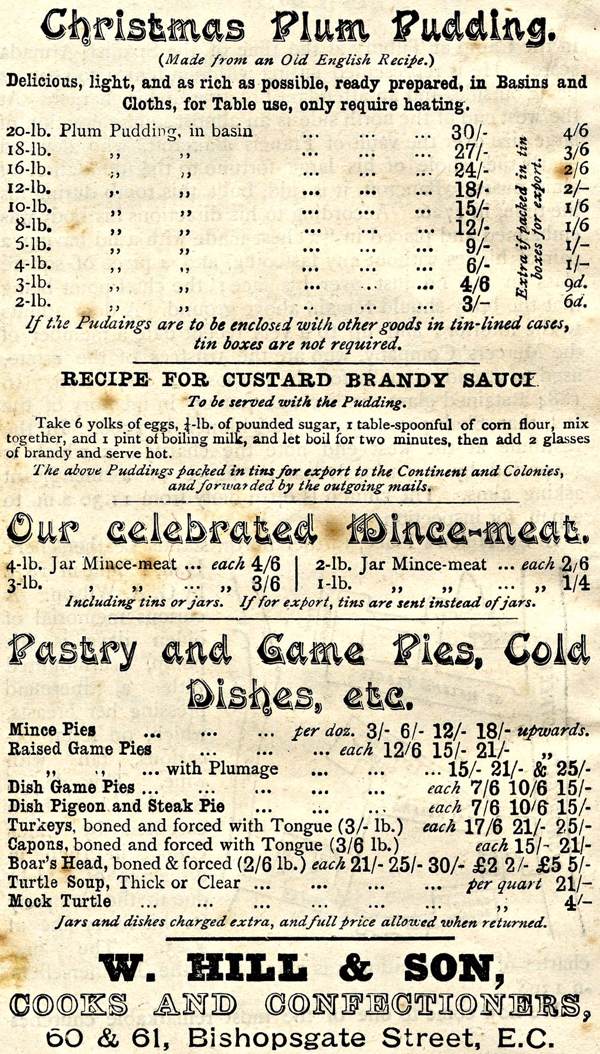 Christmas Plum Pudding.
(Made from an Old English Recipe.)
Delicious, light, and as rich as possible, ready prepared, in Basins and
Cloths, for Table use, only require heating.
20-lb. Plum Pudding, in basin ... ... ... 30/- 4/6
18-lb. ,, ,, ... ... ... 27/- 3/6
16-lb. ,, ,, ... ... ... 24/- 2/6
12-lb. ,, ,, ... ... ... 18/- 2/-
10-lb. ,, ,, ... ... ... 15/- 1/6
8-lb. ,, ,, ... ... ... 12/- 1/6
6-lb. ,, ,, ... ... ... 9/- 1/-
4-lb. ,, ,, ... ... ... 6/- 1/-
3-lb. ,, ,, ... ... ... 4/6 9d.
2-lb. ,, ,, ... ... ... 3/- 6d.
Extra if packed in tin
boxes for export.
If the Puddings are to be enclosed with other goods in tin-lined cases,
tin boxes are not required.
RECIPE FOR CUSTARD BRANDY SAUCE
To be served with the Pudding.
Take 6 yolks of eggs, ¼-lb. of pounded sugar, 1 table-spoonful of corn flour, mix
together, and 1 pint of boiling milk, and let boil for two minutes, then add 2 glasses
of brandy and serve hot.
The above Puddings packed in tins for export to the Continent and Colonies,
and forwarded by the outgoing mails.
Our celebrated Mince-meat.
4-lb. Jar Mince-meat ... each 4/6 | 2-lb. Jar Mince-meat ... each 2/6
3-lb. , ,, ... ,, 3/6 | 1-lb. ,, ,, ... ,, 1/4
Including tins or jars. If for export, tins are sent instead of jars.
Pastry and Game Pies, Cold
Dishes, etc.
Mince Pies ... ... ... per doz. 3/- 6/- 12/- 18/- upwards.
Raised Game Pies ... ... ... each 12/6 15/- 21/- ,,
,, ,, ... with Plumage ... ... ... 15/- 21/- & 25/-
Dish Game Pies ... ... ... ... each 7/6 10/6 15/-
Dish Pigeon and Steak Pie ... ... ... each 7/6 10/6 15/-
Turkeys, boned and forced with Tongue (3/- lb.) each 17/6 21/- 25/-
Capons, boned and forced with Tongue (3/6 lb.) each 15/- 21/-
Boar's Head, boned & forced (2/6 lb.) each 21/- 25/- 30/- £2 2/- £5 5/-
Turtle Soup, Thick or Clear ... ... ... per quart 21/-
Mock Turtle ... ... ... ... ... ,, 4/-
Jars and dishes charged extra, and full price allowed when returned.
W. HILL & SON,
COOKS AND CONFECTIONERS,
60 & 61, Bishopsgate Street, E.C.